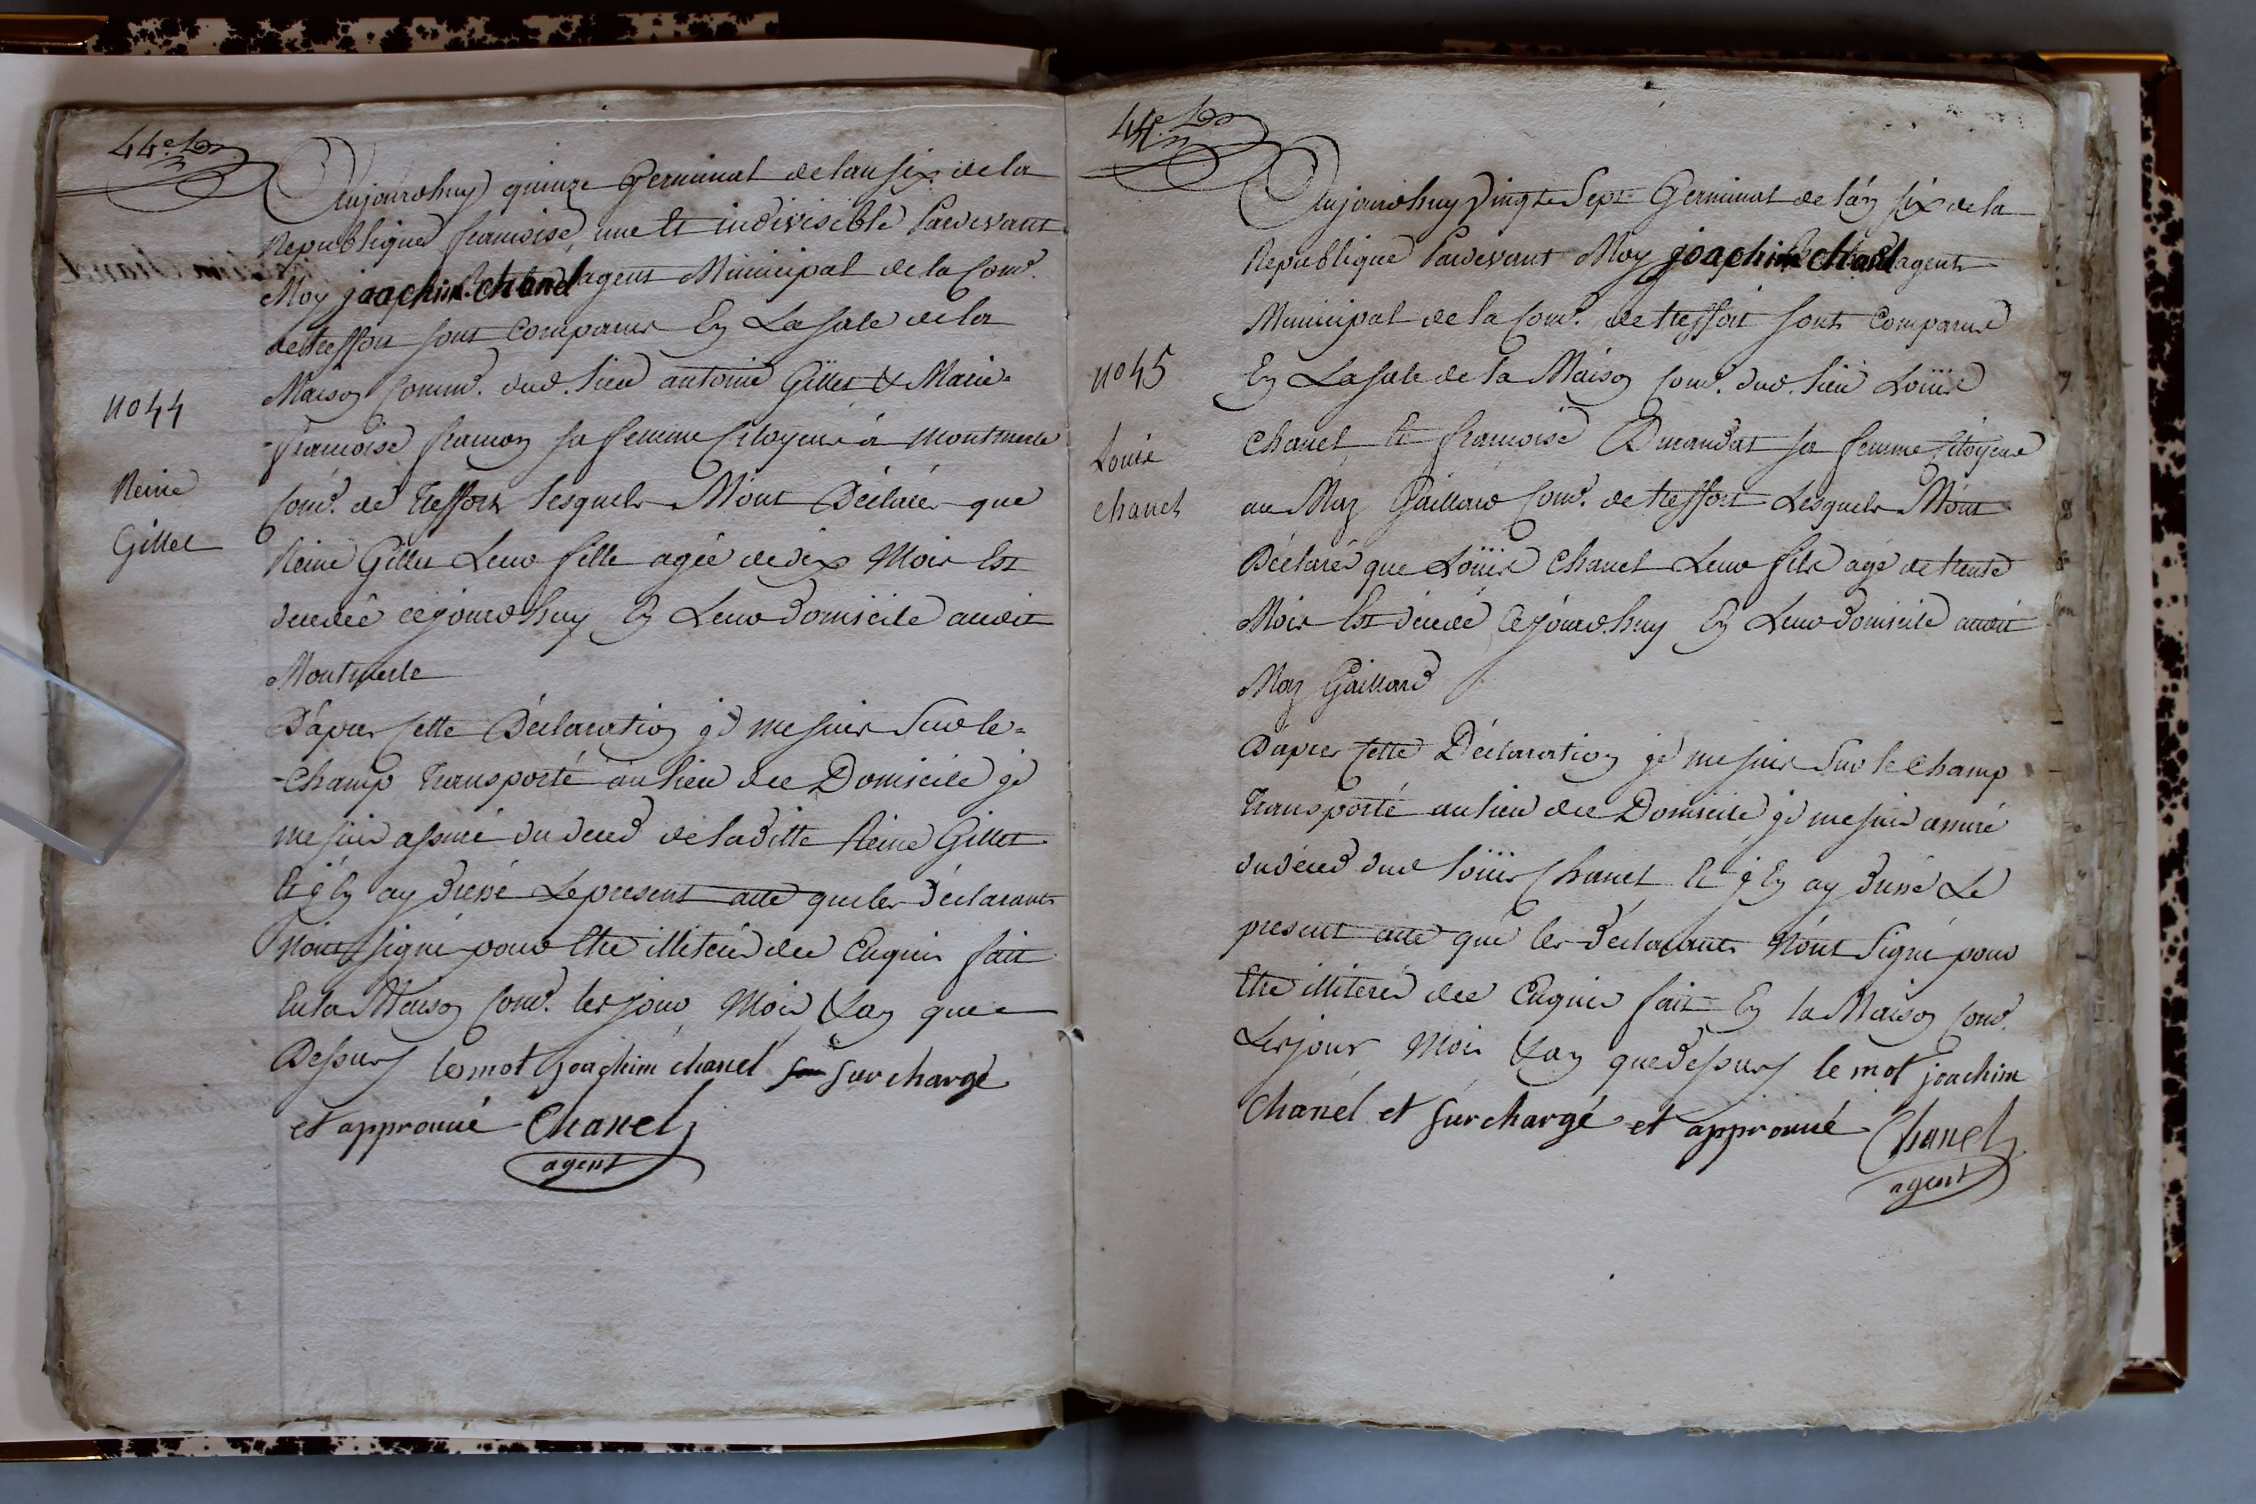 44e.
Aujourdhuy quinze Germinal de lan six de la
Republique francoise une Et indivisible Pardevant
Moy joachim chanel agent Municipal de la Com.e
de treffort sont Comparus En La sale de la
Maison Comm.e dud. lieu antoine Gillet & Marie-
-francoise framon sa femme Citoyens à Montmerle
Com.e de Treffort Lesquels M'ont Déclaré que
Reine Gillet Leur fille agée de dix Mois Est
decedée cejourdhuy En Leur Domicile audit
Montmerle
D'apres Cette Déclaration je me suis Sur le-
-Champ Transporté au lieu dee Domicile je
me suis assuré du deced de laditte Reine Gillet
Et j'En ay Dressé Le present acte que les déclarants
N'ont signé pour Etre illiteré dee Enquis fait
En la Maison Com.e les jour Mois & an que
Dessus les mot joachim chanel surchargé
et approuué Chanel
agent
no 44
Reine
Gillet
44e.
Aujourdhuy Vingt Sept Germinal de l'an six de la
Republique Pardevant Moy joachim chanel agent
Municipal de la Com.e de treffort sont Comparus
En La sale de la Maison Com.e dud. lieu Louis
Chanel Et francoise Durandat sa femme Citoyens
au Maz Gaillard Com.e de treffort Lesquels M'ont
Déclaré que Louis Chanel Leur fils agé de trente
Mois Est décedé Cejourdhuy En Leur Domicile audit
Maz Gaillard
D'apres Cette Déclaration je me suis Sur le Champ
Transporté au lieu dee Domicile je me suis assuré
du déced dud Louis Chanel Et j'En ay Dressé Le
present acte que les Déclarants N'ont Signé pour
Etre illiteré dee Enquis fait En la Maison Com.e
Les jour Mois & an que Dessus le mot joachim
Chanel et surchargé et approuué Chanel
agent
no 45
Louis
chanel